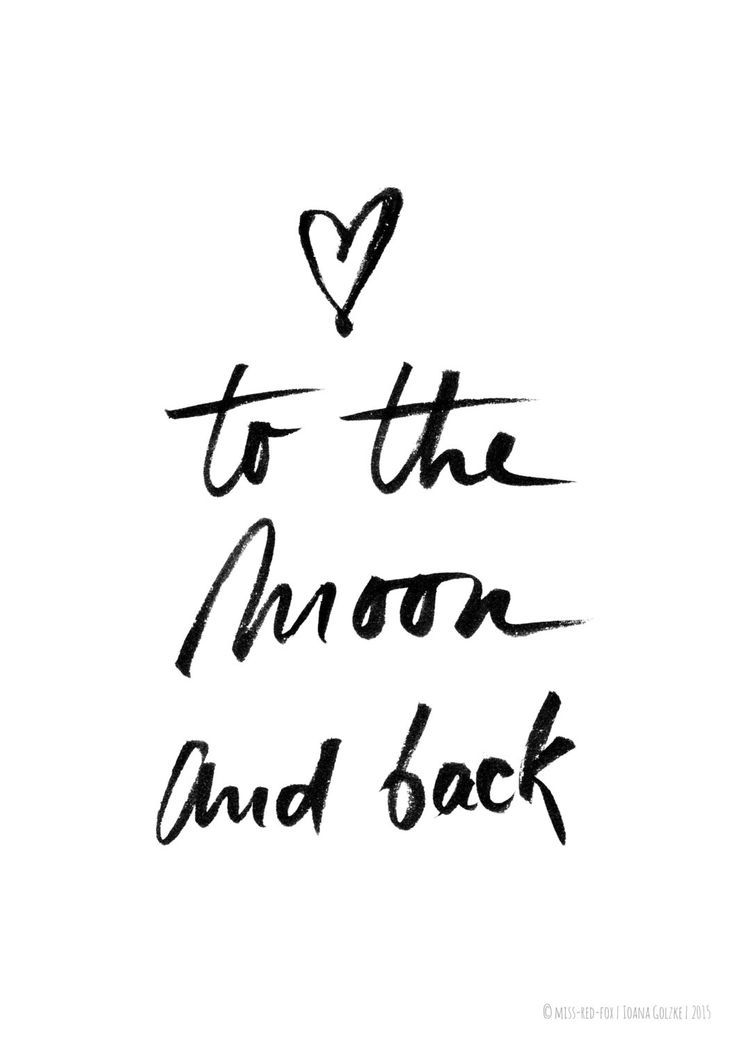 to the
moon
and back
© miss-red-fox | Ioana Golzke | 2015